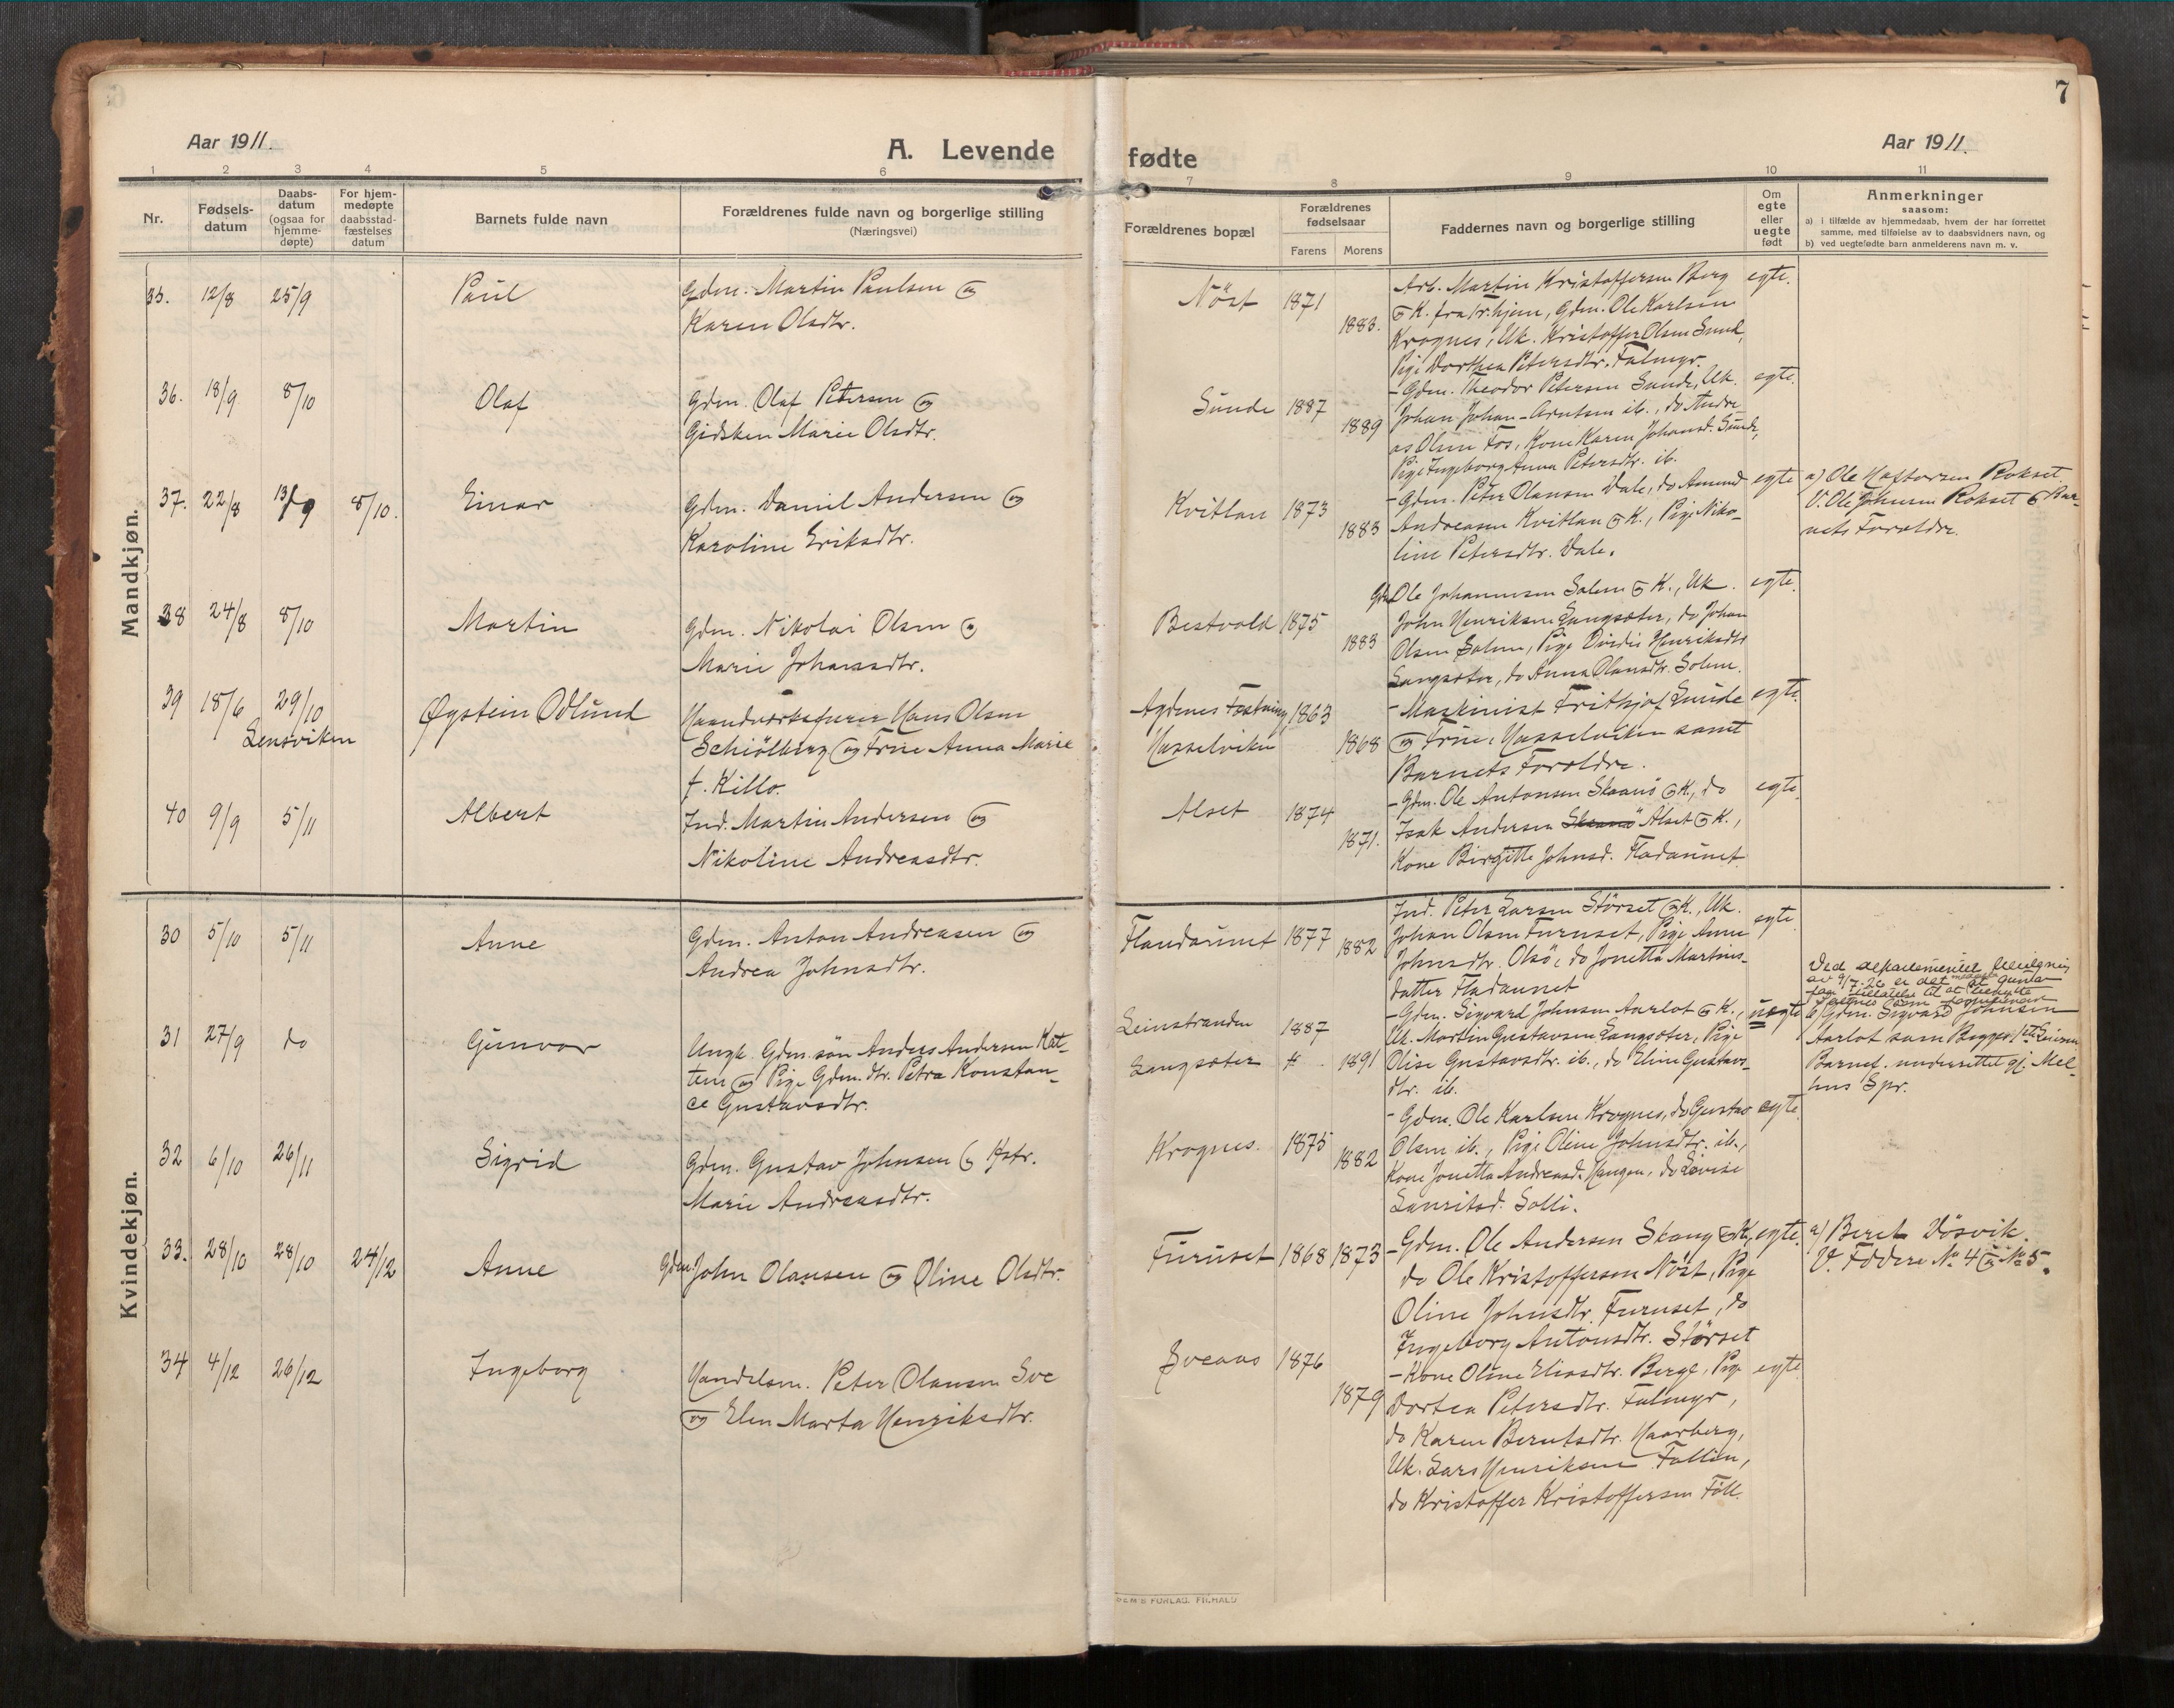 7
Aar 1911.
A. Levende
fødte
Aar 1911.
1 2 3 4 5 6
7 8 9 10 11
Nr.
Fødsels-
datum
Daabs-
datum
(ogsaa for
hjemme-
døpte)
For hjem-
medøpte
daabsstad-
fæstelses
datum
Barnets fulde navn
Forældrenes fulde navn og borgerlige stilling
(Næringsvei)
Forældrenes bopæl
Forældrenes
fødselsaar
Farens Morens
Faddernes navn og borgerlige stilling
Om
egte
eller
uegte
født
Anmerkninger
saasom:
a) i tilfælde av hjemmedaab, hvem der har forrettet
samme, med tilføielse av to daabsvidners navn, og
b) ved uegtefødte barn anmelderens navn m. v.
Mandkjøn.
35. 12/8 25/9 Paul
Gdm. Martin Paulsen og
Karen Olsdtr.
Nöst 1871
1883.
Arb. Martin Kristoffersen Berg
og K. fra Tr.hjem, Gdm. Ole Karlsen
Krognes, Uk. Kristoffer Olsen Sund,
Pige Dorthea Petersdtr. Falmyr.
egte.
36. 18/9 8/10 Olaf
Gdm. Olaf Petersen og
Gidsken Marie Olsdtr.
Sunde 1887
1889
- Gdm. Theodor Petersen Sunde, Uk.
Johan Johan-Arntsen ib., do Andre
as Olsen Fos, Kone Karen Johansd. Sunde,
Pige Ingeborg Anna Petersdtr. ib.
egte.
37. 22/8 13/9 8/10. Einar
Gdm. Daniel Andersen og
Karoline Eriksdtr.
Kvitlan 1873
1883
- Gdm. Peter Olansen Dale, do Amund
Andreasen Kvitlan og K., Pige Niko-
line Petersdtr. Dale.
egte
a) Ole Haftorsen Rokset
V. Ole Johnsen Rokset og Bar-
nets Foræeldre.
38 24/8 8/10 Martin
Gdm. Nikolai Olsen og
Marie Johansdtr.
Bestvold 1875
1883
Gdm. Ole Johannesen Solem og K., Uk.
John Henriksen Langsæter, do Johan
Olsen Solem, Pige Henriksdtr
Langsæter, do Anna Olausdtr. Solem.
egte.
39 18/6 29/10
Lensviken
Øystein Odlund
Haandverksfurer Hans Olsen
Schiölberg og Frue Anna Marie
f. Killo.
Agdenes Fæstning, 1863
Hasselviken 1868
- Maskinist Frithjof Sunde
og Frue, Hasselviken samt
Barnets Foræeldre.
egte.
40 9/9 5/11 Albert
Ind. Martin Andersen og
Nikoline Andreasdtr.
Alset 1874
1871.
- Gdm. Ole Antonsen Skaanö og K., do
Isak Andersen Skaanö Alset og K.,
Kone Birgitte Johnsd. Fladaunet
egte.
Kvindekjøn.
30 5/10 5/11 Anne
Gdm. Anton Andreasen og
Andrea Johnsdtr.
Flandaunet 1877 1882
Ind. Peter Larsen Störset og K., Uk.
Johan Olsen Furuset, Pige Anne
Johnsdtr. Olsö, do Jonetta Martins-
datter Fladaunet
egte
31 27/9 do Gunvor
Ungk. Gdm.søn Anders Andersen Kat-
tem og Pige Gdm.dtr. Petra Konstan-
ce Gustavsdtr.
Leinstranden 1887
Langsæter # 1891
- Gdm. Sigvard Johnsen Aarlot og K.,
Uk. Martin Gustavsen Langsæter, Pige
Olise Gustavsdtr. ib., do Eline Gustavs-
dtr. ib.
uegte
Ved
av 9/7-26 er det
til at benytte
b) Gdm. Sigvard Johnsen
Aarlot som
Barnef. underrettet gj. Mel-
hus Spr.
32 6/10 26/11 Sigrid
Gdm. Gustav Johnsen og Hstr.
Marie Andreasdtr.
Krognes. 1875
1882
- Gdm. Ole Karlsen Krognes, do Gustav
Olsen ib., Pige Oline Johnsdtr. ib.,
Kone Jonetta Andreasd. Haugen, do Lovise
Lauritsd. Solli.
egte.
33. 28/10 28/10 24/12 Anne
Gdm. John Olausen og Oline Olsdtr.
Furuset 1868 1873
- Gdm. Ole Andersen Skaug og K,
do Ole Kristoffersen Nöst, Pige
Oline Johnsdtr. Furuset, do
Ingeborg Antonsdtr. Störset
egte.
a) Beret Vösvik.
V. Fadder No 4 og No 5.
34 4/12 26/12 Ingeborg
Handelsm. Peter Olausen Sve
og Elen Marta Henriksdtr.
Sveaas 1876
1879
- Kone Oline Eliasdtr. Berge, Pige
Dortea Petersdtr. Falmyr,
do Karen Berntsdtr. Haarberg,
Uk. Lars Henriksen Follin,
do Kristoffer Kristoffersen Föll.
egte